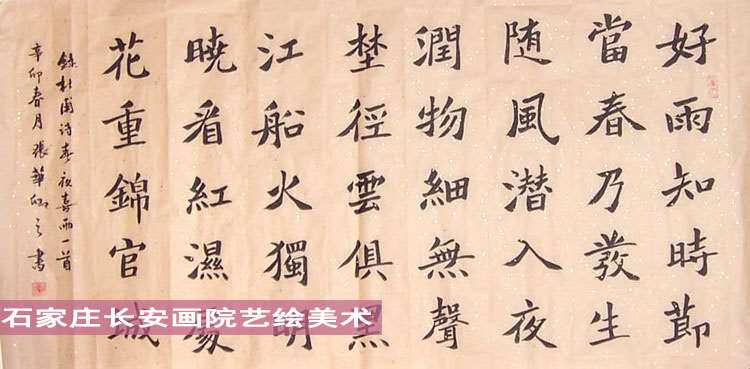 好雨知時莭
當春乃發生
随風潜入夜
潤物細無聲
埜徑雲俱黑
江船火獨明
曉看紅濕處
花重錦官城
錄杜甫诗春夜喜雨一首
辛卯春月張華書
石家庄长安画院艺绘美术